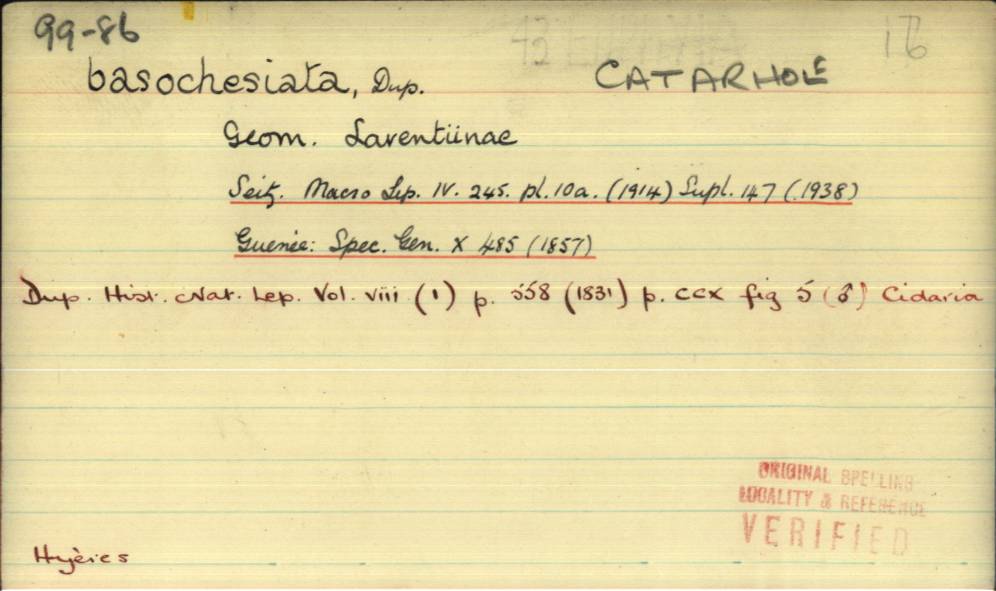 99-86 16
basochesiata, Dup. CATARHOE
Geom. Larentiinae
Seitz. Macro Lep. IV. 245. pl. 10a. (1914) Supl. 147 (1938)
Guenée: Spec. Gen. X 485 (1857)
Dup. Hist. Nat. Lep. Vol. viii (1) p. 558 (1831) p. ccx fig 5 (♂) Cidaria
ORIGINAL SPELLING
LOCALITY & REFERENCE
VERIFIED
Hyères